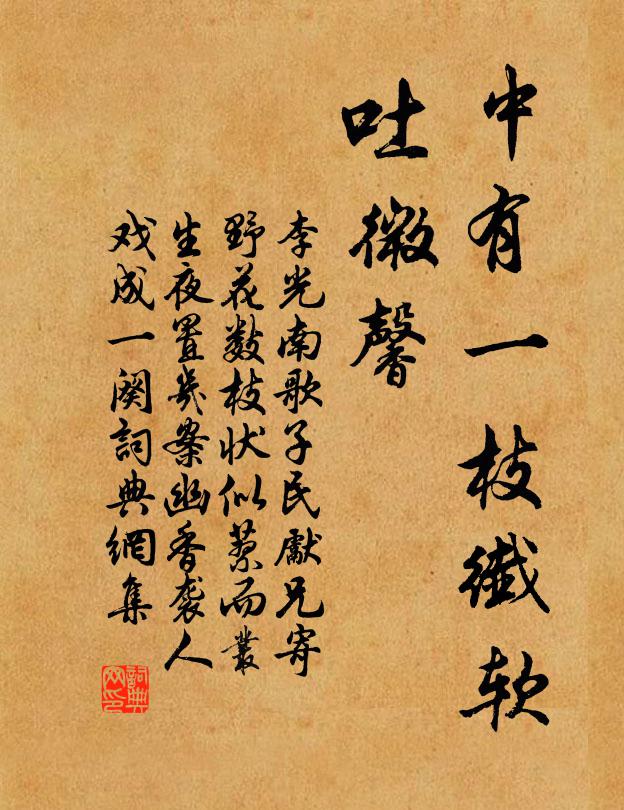 中有一枝纖软
吐微馨
李光南歌子民獻兄寄
野花数枝状似蔾而叢
生夜置几案幽香袭人
戏成一阕詞典網集
詞典网印